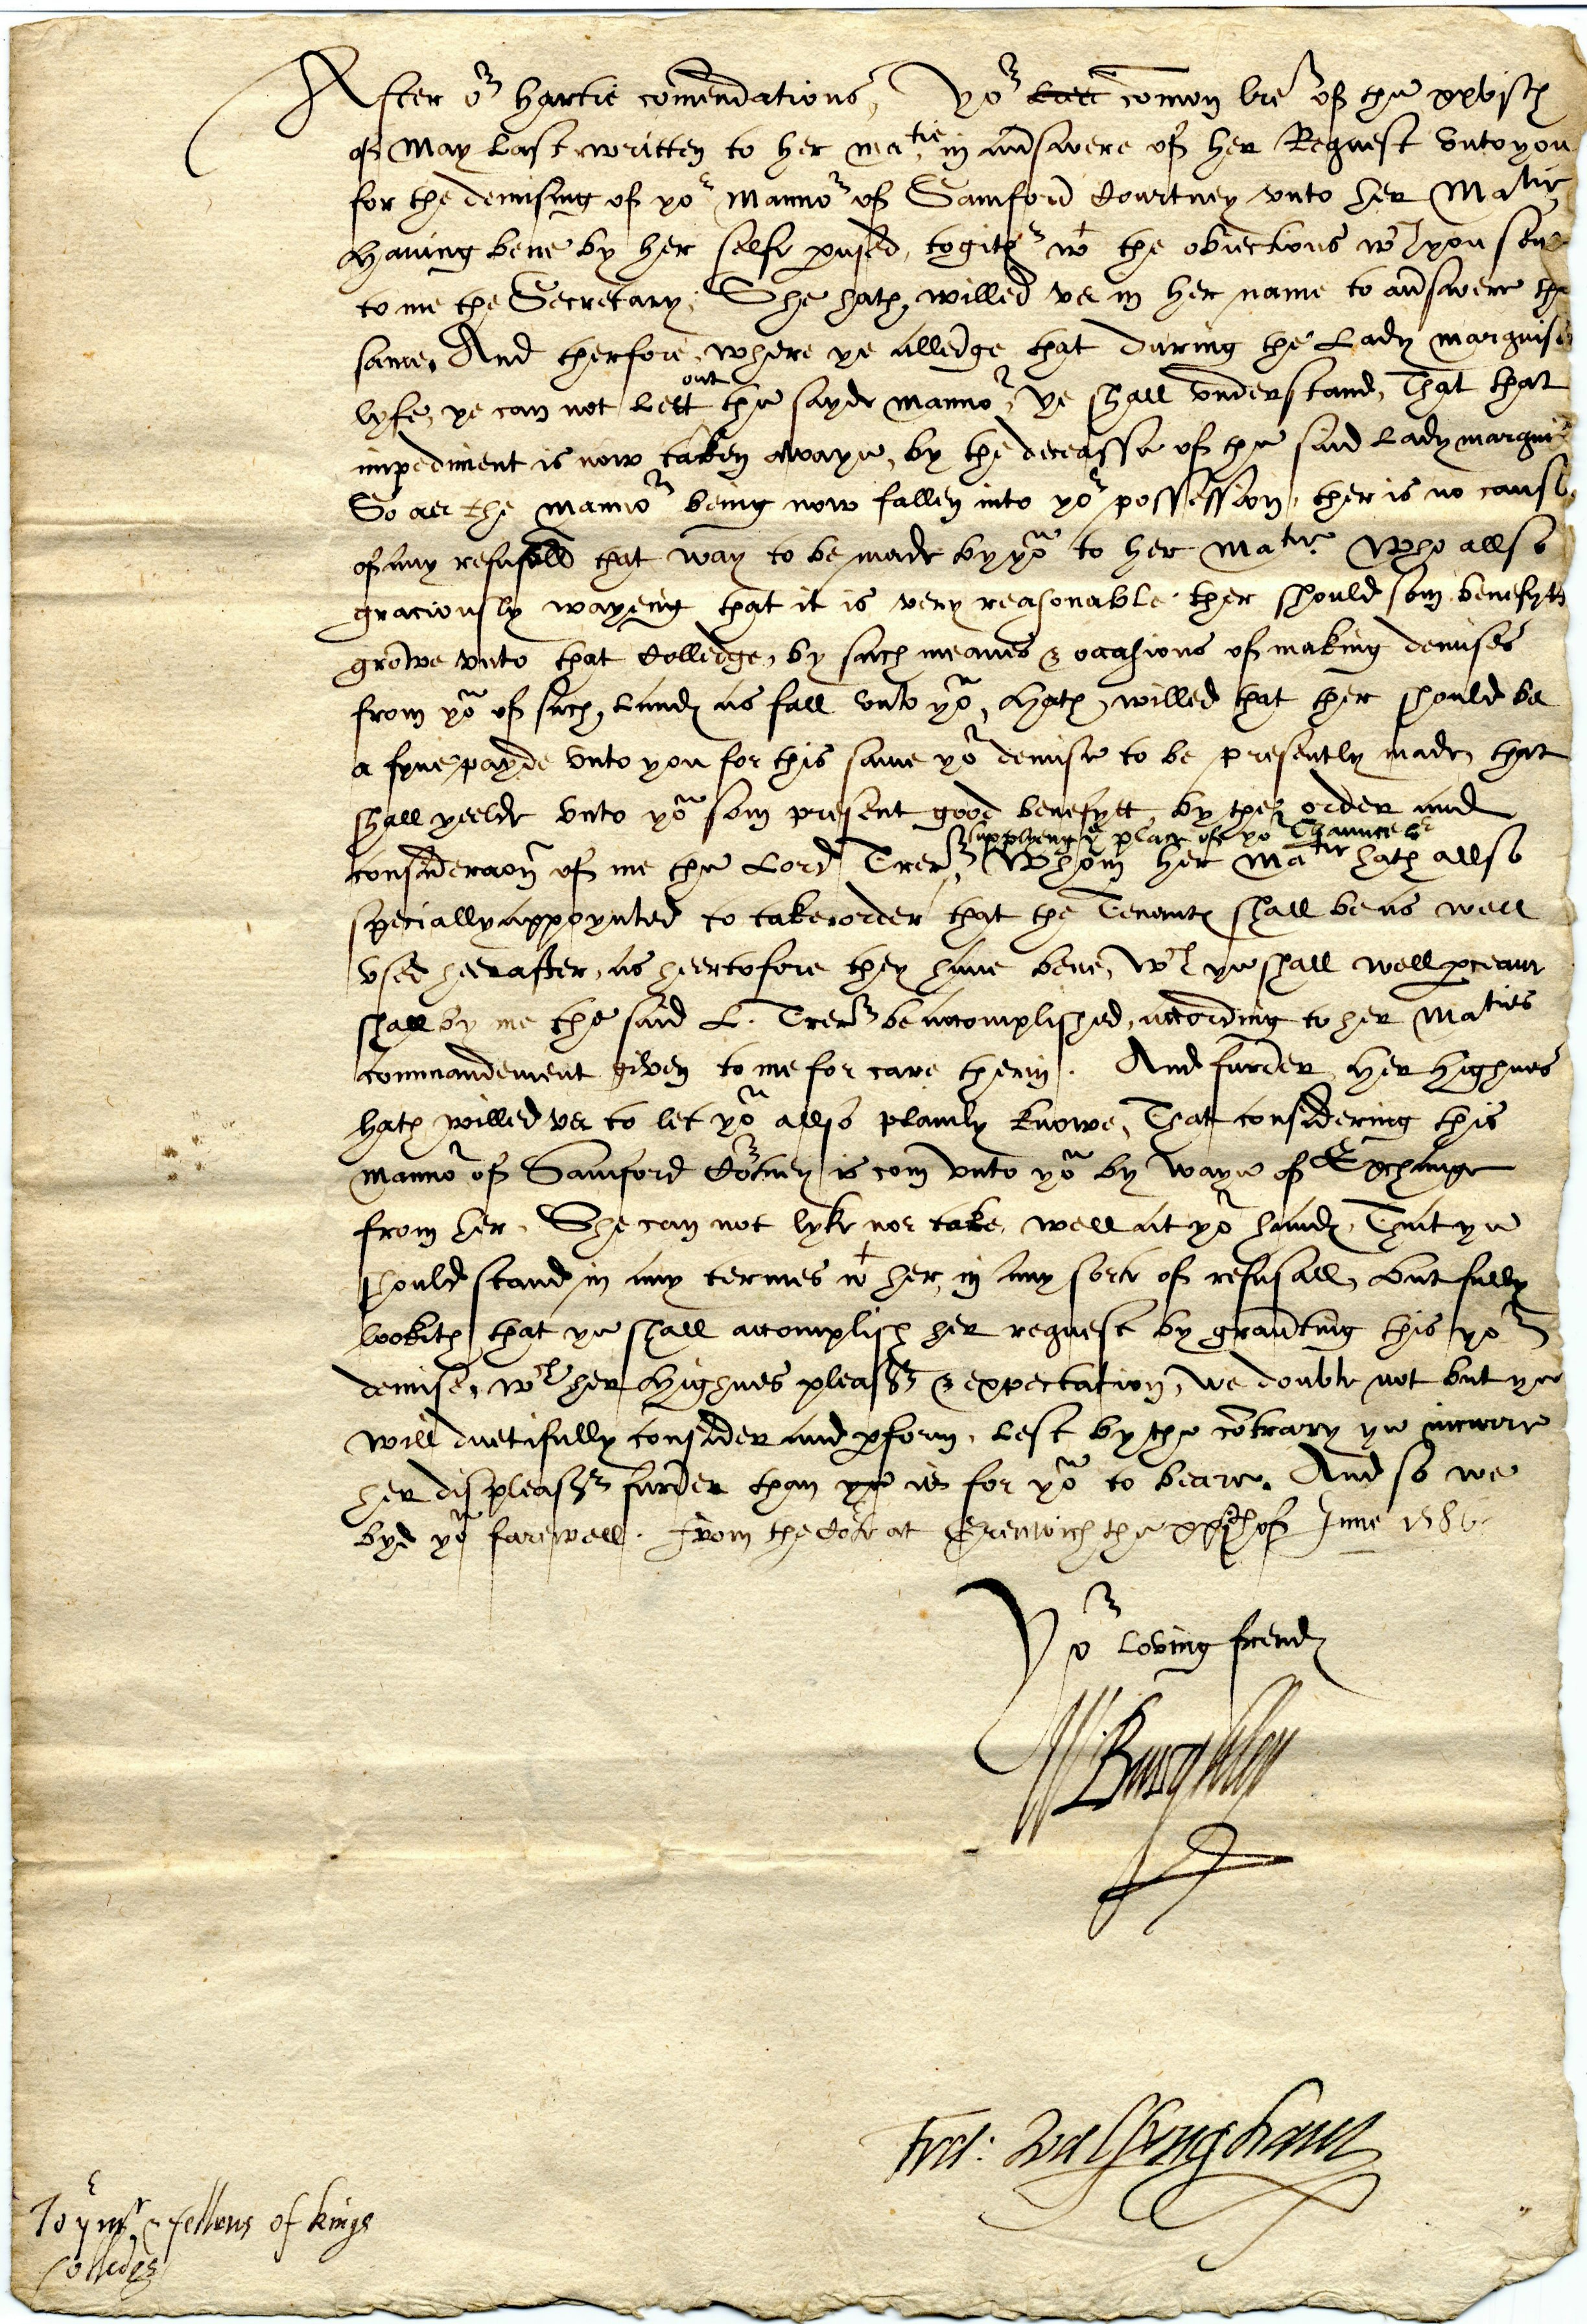 After or hartie comendations, Yor Lett comon lre of the xxvjth
of May last written to her matie in aunswere of her Request vnto you
for the demising of yor Mannor of Samford Courtney vnto her Matie
Having bene by her selfe pused, togithr wt the obiections wch you sent
to me the Secretary; She hath willed vs in her name to aunswere the
same, And therfore, where ye alledge that during the Lady marquise
lyfe, ye can not lett out the sayde mannor, ye shall vnderstand, That that
impediment is now taken awaye, by the deceasse of the said Lady marquise
So as the mannor being now fallen into yor possession, ther is no cause
of any refusall that way to be made by you to her Matie. Who allso
graciously waying that it is very reasonable ther should som benefytt
growe vnto that Colledge, by such meanes & occasions of making demises
from you of such landes as fall vnto you, Hath willed that ther should be
a fyne payde vnto you for this same yor demise to be presently made, that
shall yeelde vnto you som present good benefytt, by the order and
consideraon of me the Lord Trer, supplyeng ye place of yor Chauncelr Whom her Matie hath allso
specially appoynted to take order that the Tenantes shall be as well
vsed heerafter, as heertofore they haue bene, wch ye shall well pceaue
shall by me the said L. Trer be accomplished, according to her Maties
commandement given to me for care therin. And furder her Highnes
hath willed vs to let you allso plainly knowe, That considering this
mannor of Samford Cortney is com vnto you by waye of Exchange
from her. She can not lyke nor take well at yor handes, That ye
should stand in any termes wt her, in any sorte of refusall, but fully
lookith that ye shall accomplish her request by graunting this yor
demise, wch her Highnes pleasr & expectation, we doubte not but ye
will duetifully consider and pform, lest by the contrary ye incurre
her displeasr furder than ye is for you to beare. And so we
byd you farewell. From the Corte at Grenwich the xxth of June 1586.
Yor loving frendes
W Burghley
Fra: Walsyngham
To ye mr & fellows of kings
Colledge